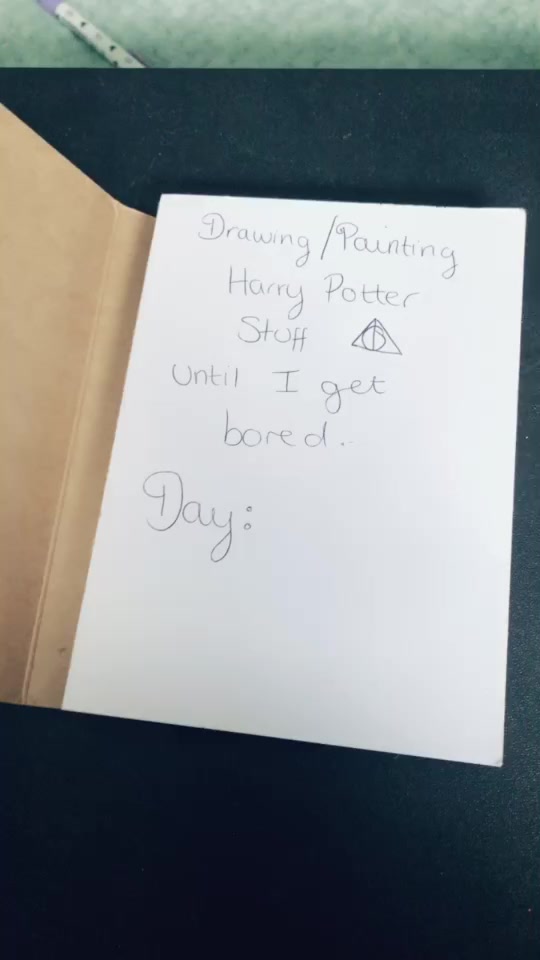 Drawing/Painting
Harry Potter
Stuff
Until I get
bored.
Day: